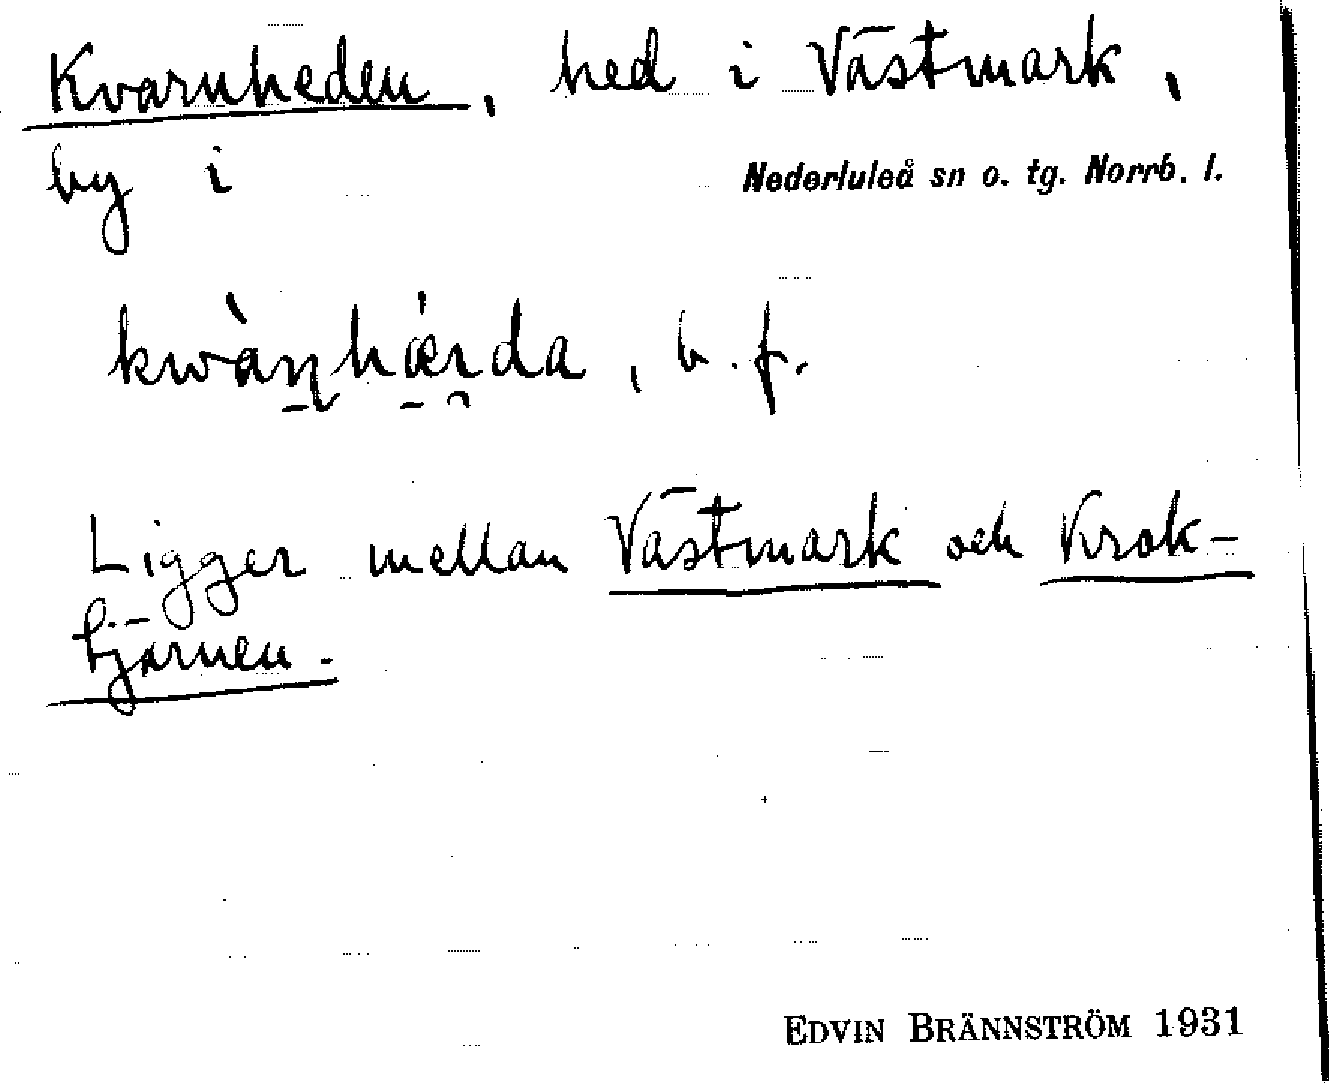 Kvarnheden, hed i Västmark,
by i Nederluleå sn o. tg. Norrb. l.
kwàn̠hǽɪ̯da, b.f.
Ligger mellan Västmark och Krok-
tjärnen.
EDVIN BRÄNNSTRÖM 1931